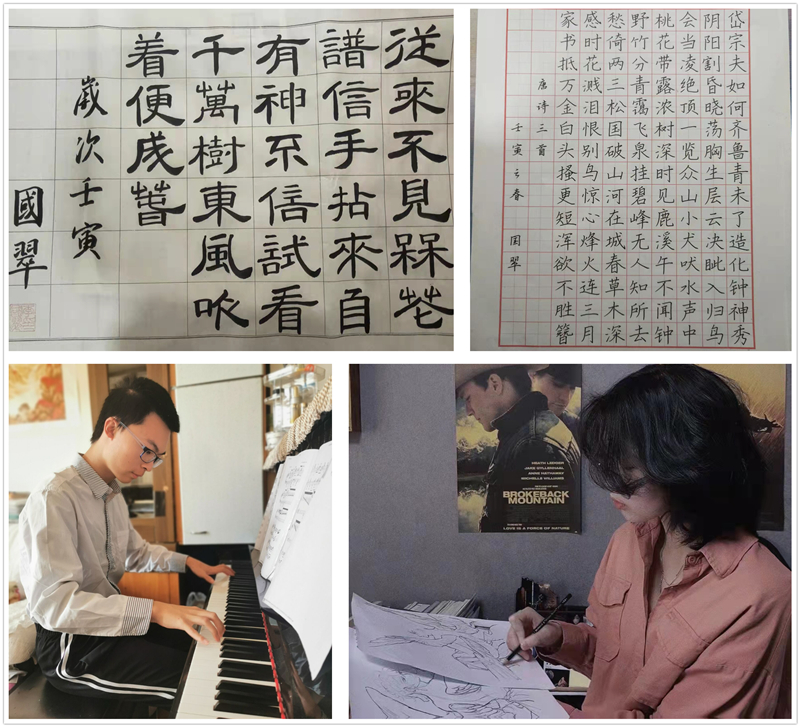 從來不見槑花
譜信手拈來自
有神不信試看
千萬樹東風吹
着便成萅
歲次壬寅
國翠
岱宗夫如何齐鲁青未了造化钟神秀
阴阳割昏晓荡胸生层云决眦入归鸟
会当凌绝顶一览众山小犬吠水声中
桃花带露浓树深时见鹿溪午不闻钟
野竹分青霭飞泉挂碧峰无人知所去
愁倚两三松国破山河在城春草木深
感时花溅泪恨别鸟惊心烽火连三月
家书抵万金白头搔更短浑欲不胜簪
唐诗三首
壬寅之春 国翠
HEATH LEDGER
JAKE GYLLENHAAL
ANNE HATHAWAY
MICHELLE WILLIAMS
BROKEBACK
MOUNTAIN
LOVE IS A FORCE OF NATURE